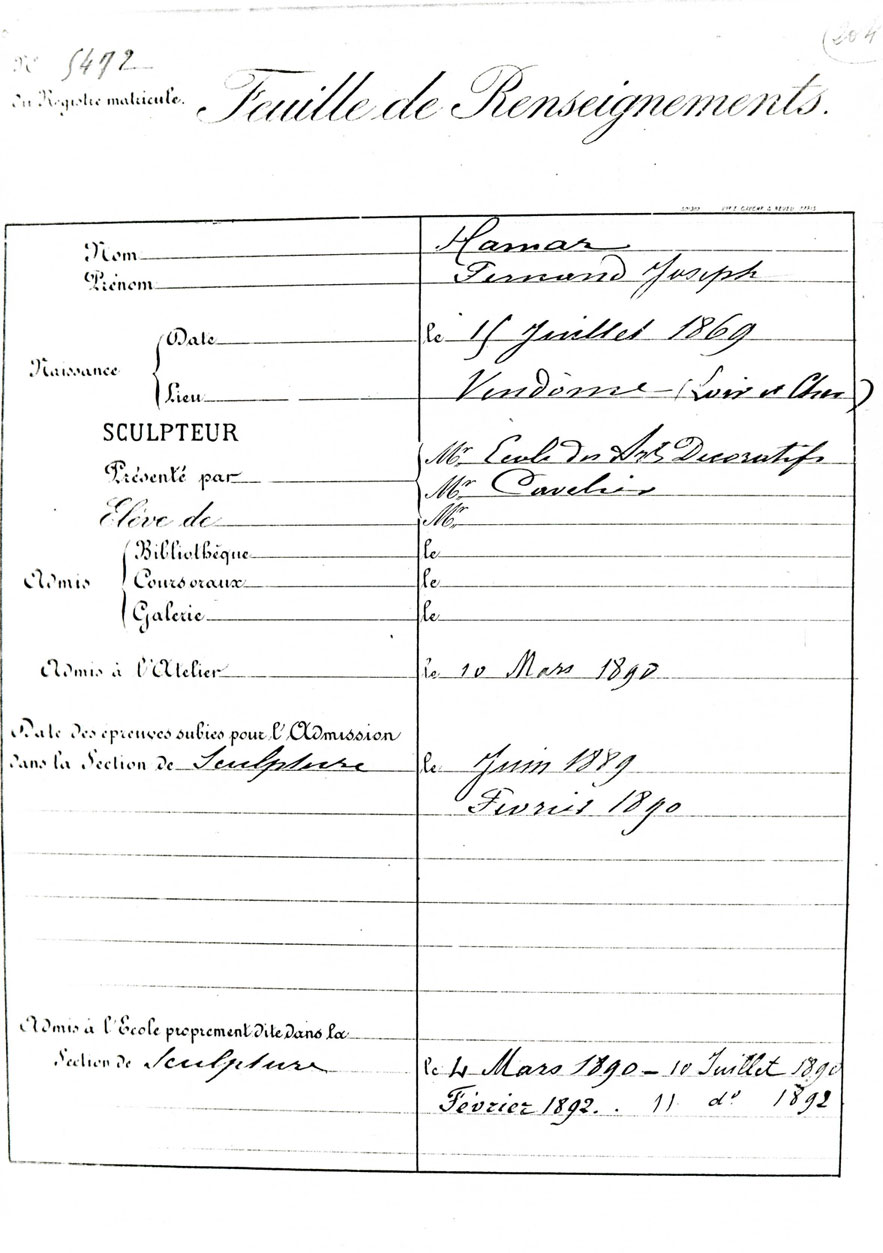 N° 5472
du Registre matricule.
Feuille de Renseignements.
Nom Hamar
Prénom Fernand Joseph
Naissance
Date le 15 Juillet 1869
Lieu Vendôme - (Loir et Cher)
SCULPTEUR
Présenté par Mr Ecole des Arts Decoratifs
Mr Cavelier
Elève de Mr
Admis
Bibliothèque le
Cours oraux le
Galerie le
Admis à l'Atelier le 10 Mars 1890
Date des épreuves subies pour l'Admission
dans la Section de Sculpture le Juin 1889
Fevrier 1890
Admis à l'Ecole proprement dite dans la
Section de Sculpture le 4 Mars 1890 - 10 Juillet 1890
Février 1892. . 11 do 1892